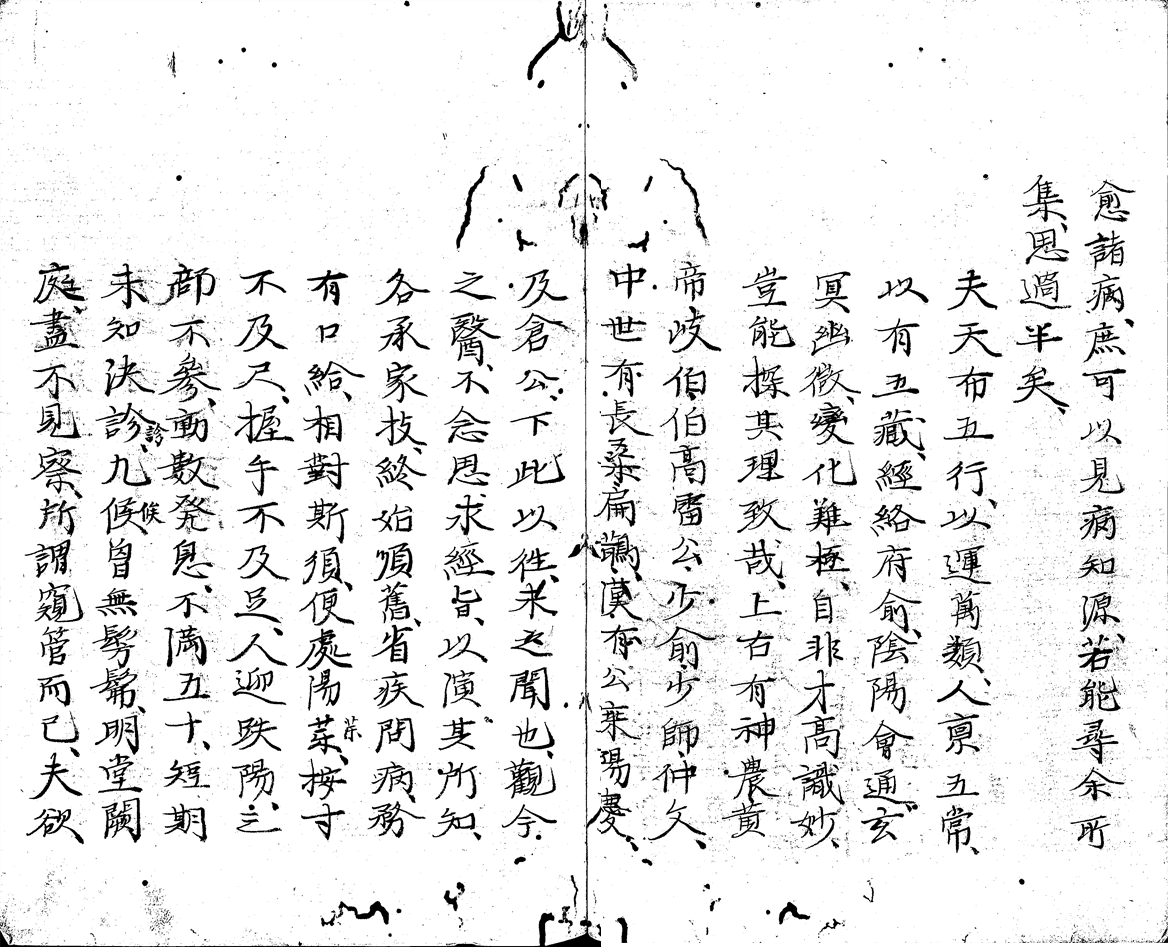 愈諸病、庶可以見病知源、若能尋余所
集、思過半矣、
夫天布五行、以運萬類、人稟五常、
以有五藏、經絡府俞、陰陽會通、玄
冥幽微、變化難極、自非才高識妙、
豈能探其理致哉、上古有神農黄
帝岐伯伯高雷公少俞少師仲文、
中世有長桑扁鵲、漢有公乘陽慶、
及倉公、下此以往、未之聞也、觀今
之醫、不念思求經旨、以演其所知、
各承家技、終始順舊、省疾問病、務
有口給、相對斯須、便處陽菜、按寸
不及尺、握手不及足、人迎趺陽、三
部不參、動數発息、不滿五十、短期
未知決診、診九候、候曾無髣髴、明堂闕
庭、盡不見察、所謂窺管而已、夫欲、